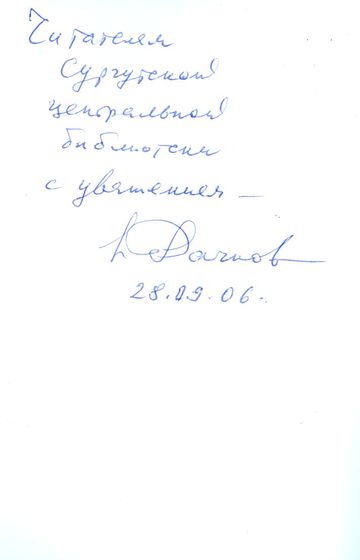 Читателям
Сургутской
центральной
библиотеки
с уважением —
28.09.06.